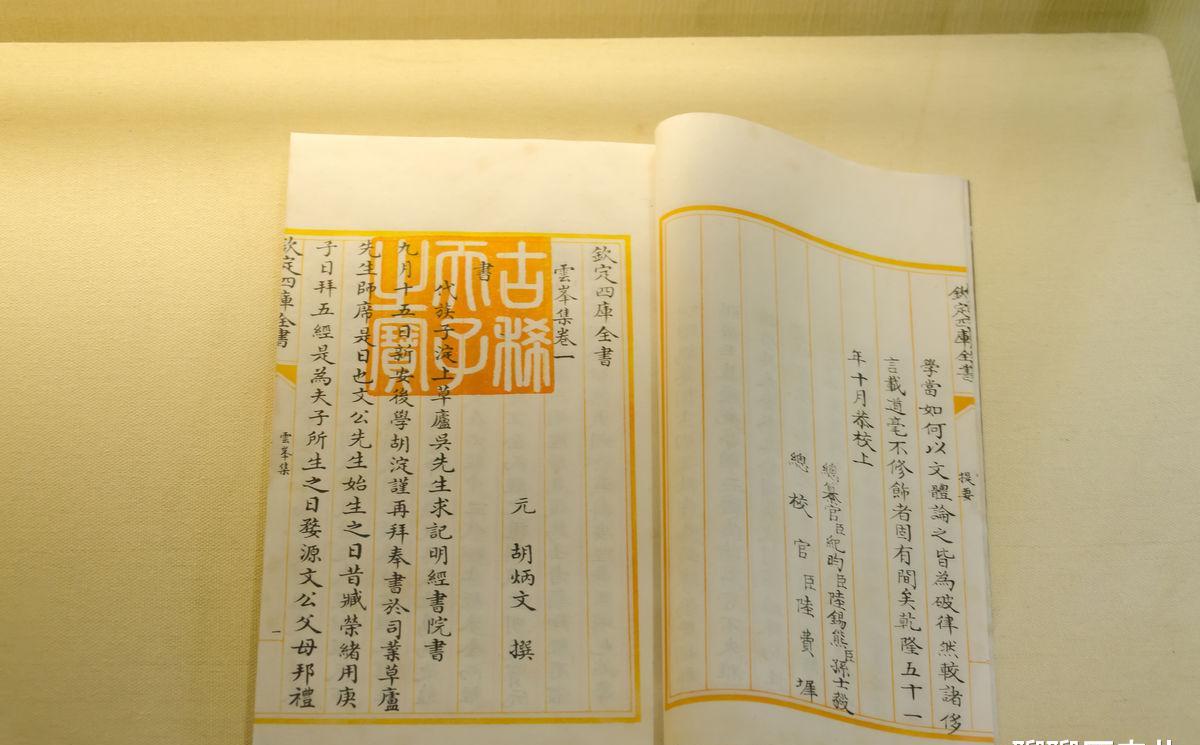 欽定四庫全書
提要
學當如何以文體論之皆為破律然較諸侈
言載道毫不修飾者固有間矣乾隆五十一
年十月恭校上
總纂官臣紀昀臣陸錫熊臣孫士毅
總校官臣陸費墀
欽定四庫全書
雲峯集卷一
元 胡炳文 撰
書
代族子淀上草廬吳先生求記明經書院書
九月十五日新安後學胡淀謹再拜奉書於司業草廬
先生師席是日也文公先生始生之日昔臧榮緒用庚
子日拜五經是為夫子所生之日婺源文公父母邦禮
欽定四庫全書
雲峯集
一
古稀
天子
之寶